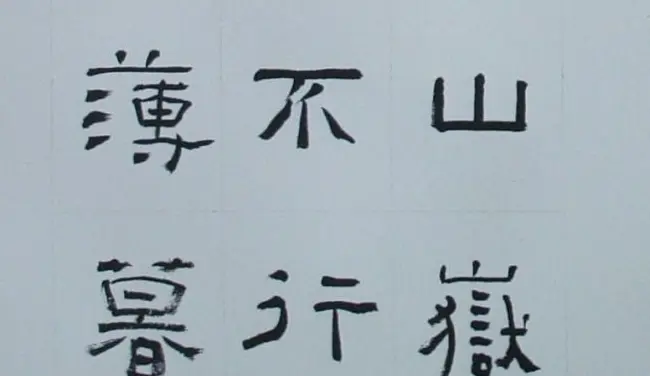 山嶽
不行
薄暮